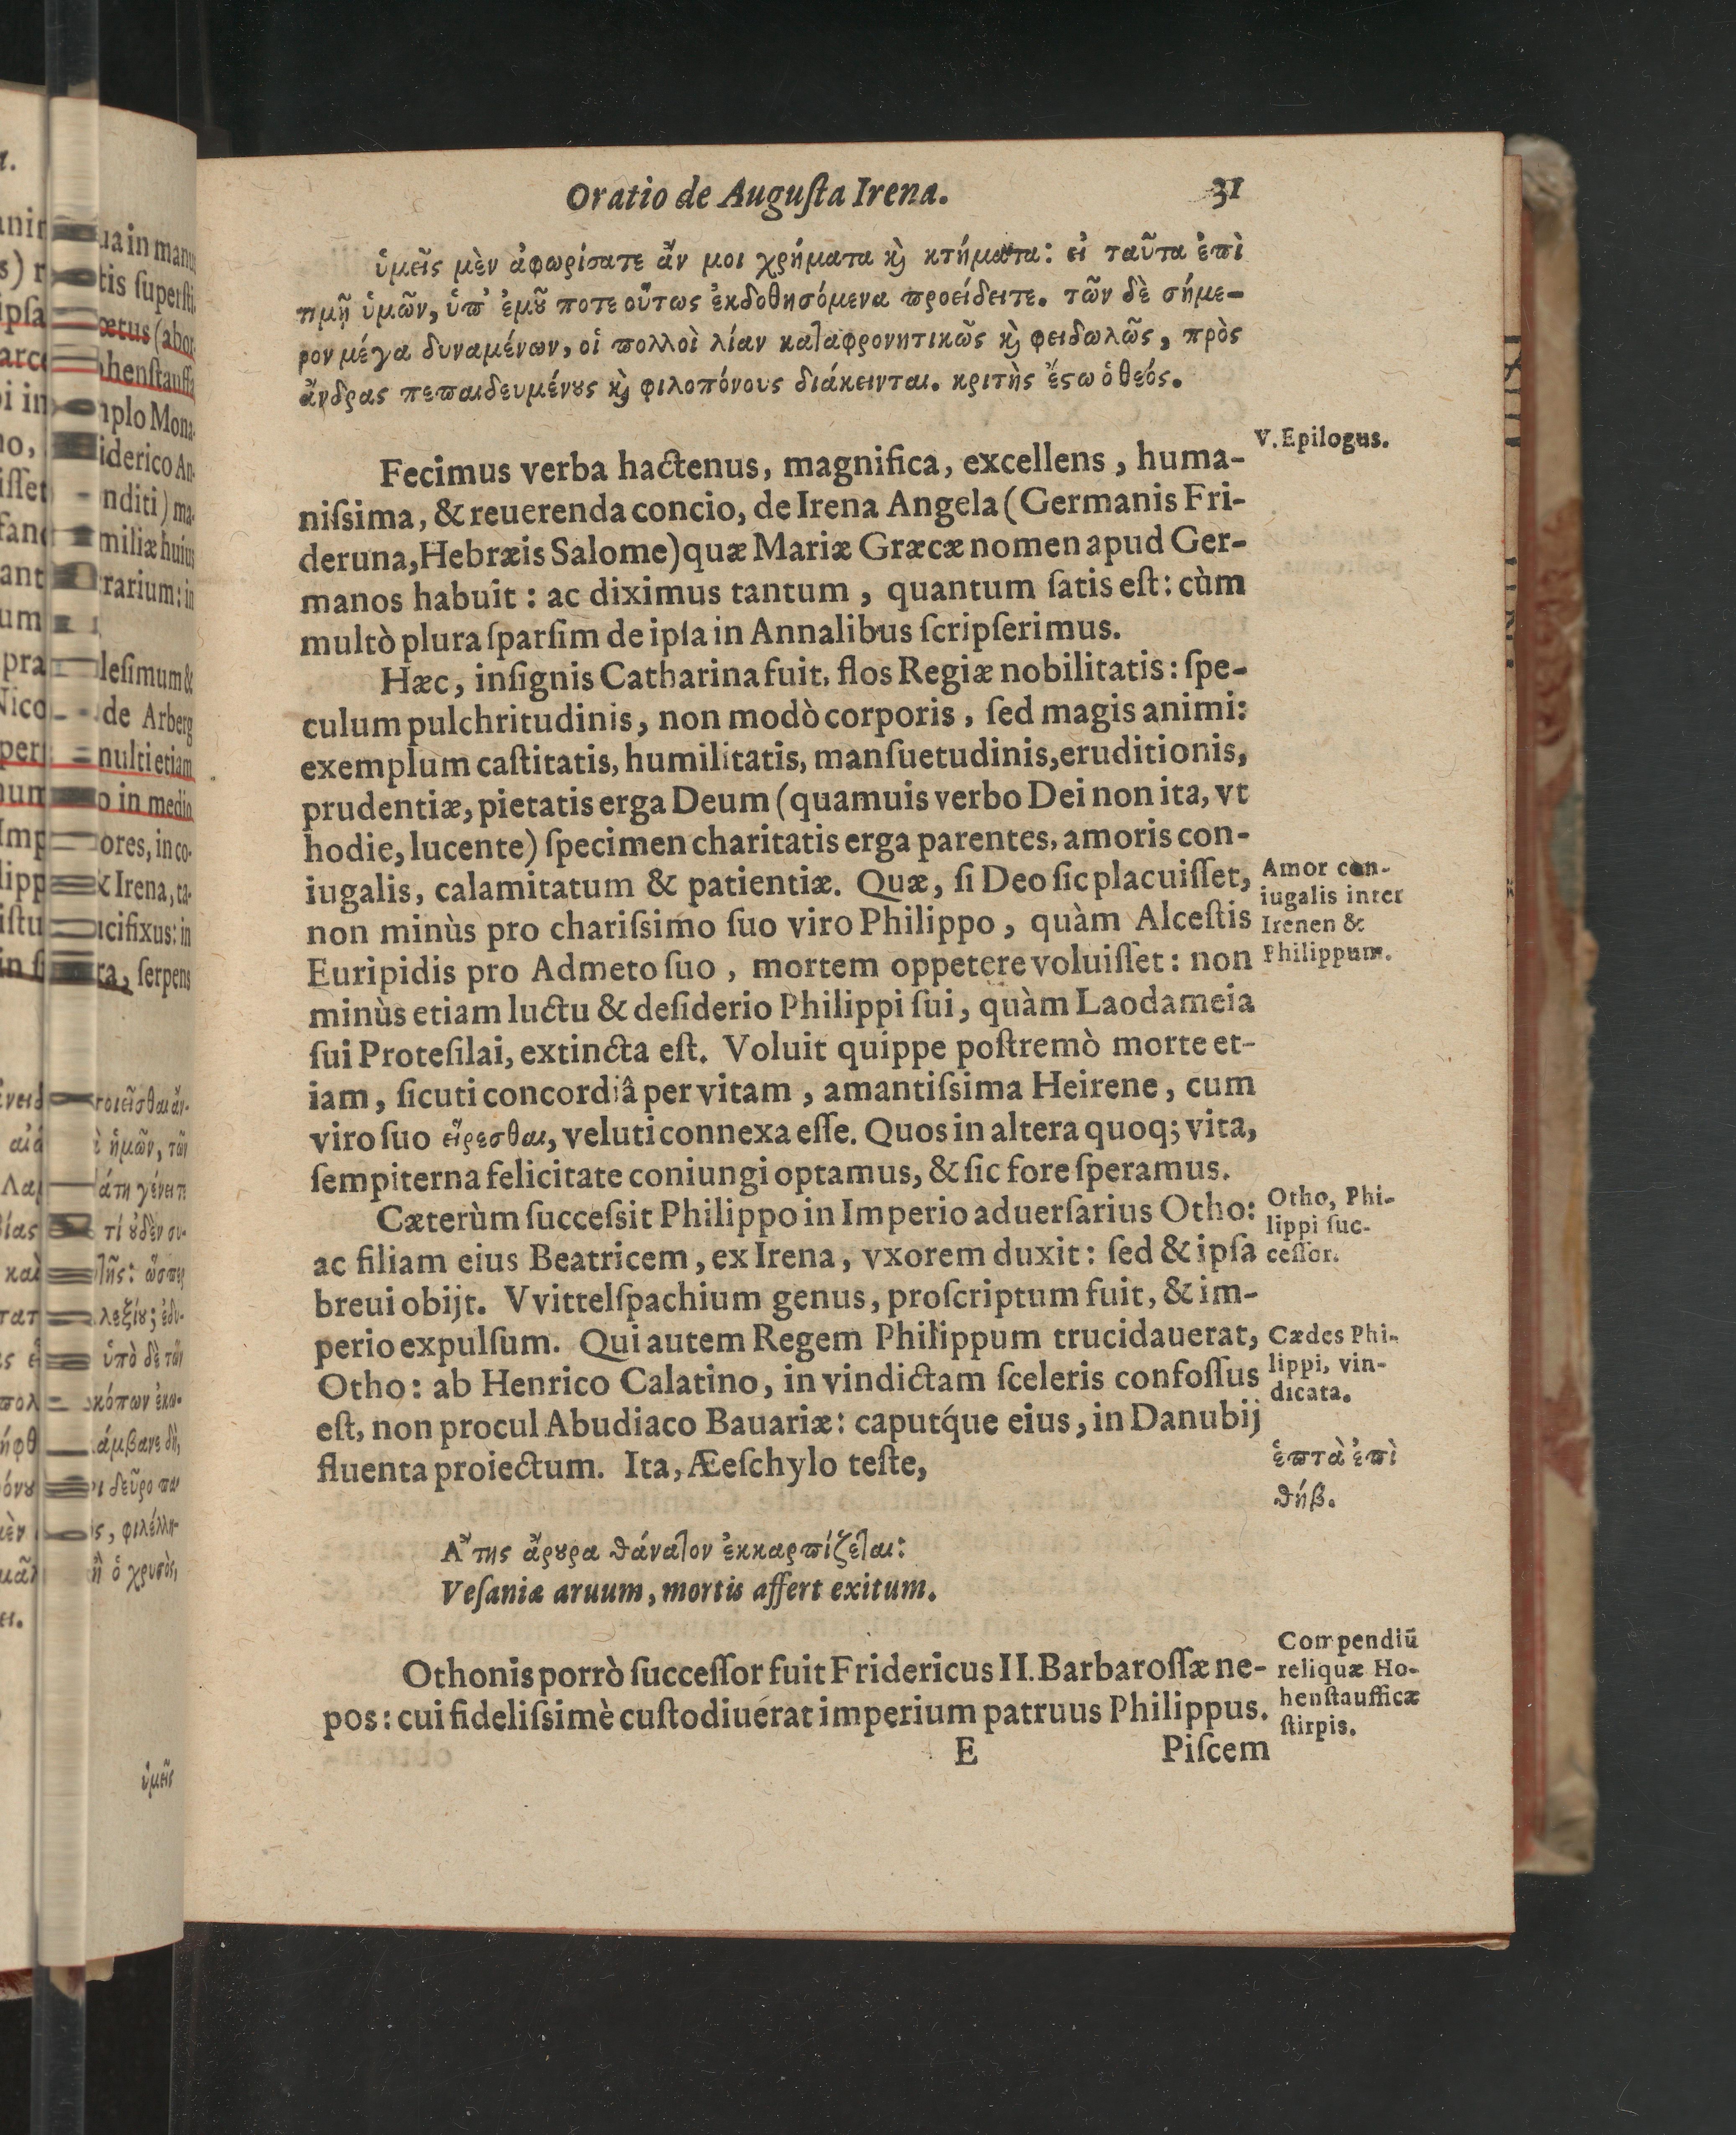 Oratio de Auguſta Irena. 31
ὑμεῖς μὲν ἀφωρίσατε ἄν μοι χρήματα ϗ̀ κτήματα: εἰ ταῦτα ἐπὶ
τιμῇ ὑμῶν, ὑπ' ἐμοῦ ποτε οὕτως ἐκδοθησόμενα προείδειτε. τῶν δὲ σήμε-
ρον μέγα δυναμένων, οἱ πολλοὶ λίαν καταφρονητικῶς ϗ̀ φειδωλῶς, πρὸς
ἄνδρας πεπαιδευμένους ϗ̀ φιλοπόνους διάκεινται. κριτὴς ἔστω ὁ θεός.
V. Epilogus.
Fecimus verba hactenus, magnifica, excellens, huma-
niſsima, & reuerenda concio, de Irena Angela (Germanis Fri-
deruna, Hebræis Salome) quæ Mariæ Græcæ nomen apud Ger-
manos habuit: ac diximus tantum, quantum ſatis eſt: cùm
multò plura ſparſim de ipſa in Annalibus ſcripſerimus.
Hæc, inſignis Catharina fuit, flos Regiæ nobilitatis: ſpe-
culum pulchritudinis, non modò corporis, ſed magis animi:
exemplum caſtitatis, humilitatis, manſuetudinis, eruditionis,
prudentiæ, pietatis erga Deum (quamuis verbo Dei non ita, vt
hodie, lucente) ſpecimen charitatis erga parentes, amoris con-
iugalis, calamitatum & patientiæ. Quæ, ſi Deo ſic placuiſſet,
non minùs pro chariſsimo ſuo viro Philippo, quàm Alceſtis
Euripidis pro Admeto ſuo, mortem oppetere voluiſſet: non
minùs etiam luctu & deſiderio Philippi ſui, quàm Laodameia
ſui Proteſilai, extincta eſt. Voluit quippe poſtremò morte et-
iam, ſicuti concordiâ per vitam, amantiſsima Heirene, cum
viro ſuo εἴρεσθαι, veluti connexa eſſe. Quos in altera quoq; vita,
ſempiterna felicitate coniungi optamus, & ſic fore ſperamus.
Amor con-
iugalis inter
Irenen &
Philippum.
Cæterùm ſucceſsit Philippo in Imperio aduerſarius Otho:
ac filiam eius Beatricem, ex Irena, vxorem duxit: ſed & ipſa
breui obijt. Vvittelſpachium genus, proſcriptum fuit, & im-
perio expulſum. Qui autem Regem Philippum trucidauerat,
Otho: ab Henrico Calatino, in vindictam ſceleris confoſſus
eſt, non procul Abudiaco Bauariæ: caputq́ue eius, in Danubij
fluenta proiectum. Ita, Æeſchylo teſte,
Otho, Phi-
lippi ſuc-
ceſſor.
Cædes Phi-
lippi, vin-
dicata.
ἑπτὰ ἐπὶ
θήβ.
Ἄτης ἄρουρα θάνατον ἐκκαρπίζεται:
Veſaniæ aruum, mortis affert exitum.
Othonis porrò ſucceſſor fuit Fridericus II. Barbaroſſæ ne-
pos: cui fideliſsimè cuſtodiuerat imperium patruus Philippus.
Compendiū
reliquæ Ho-
henſtaufficæ
ſtirpis.
E Piſcem